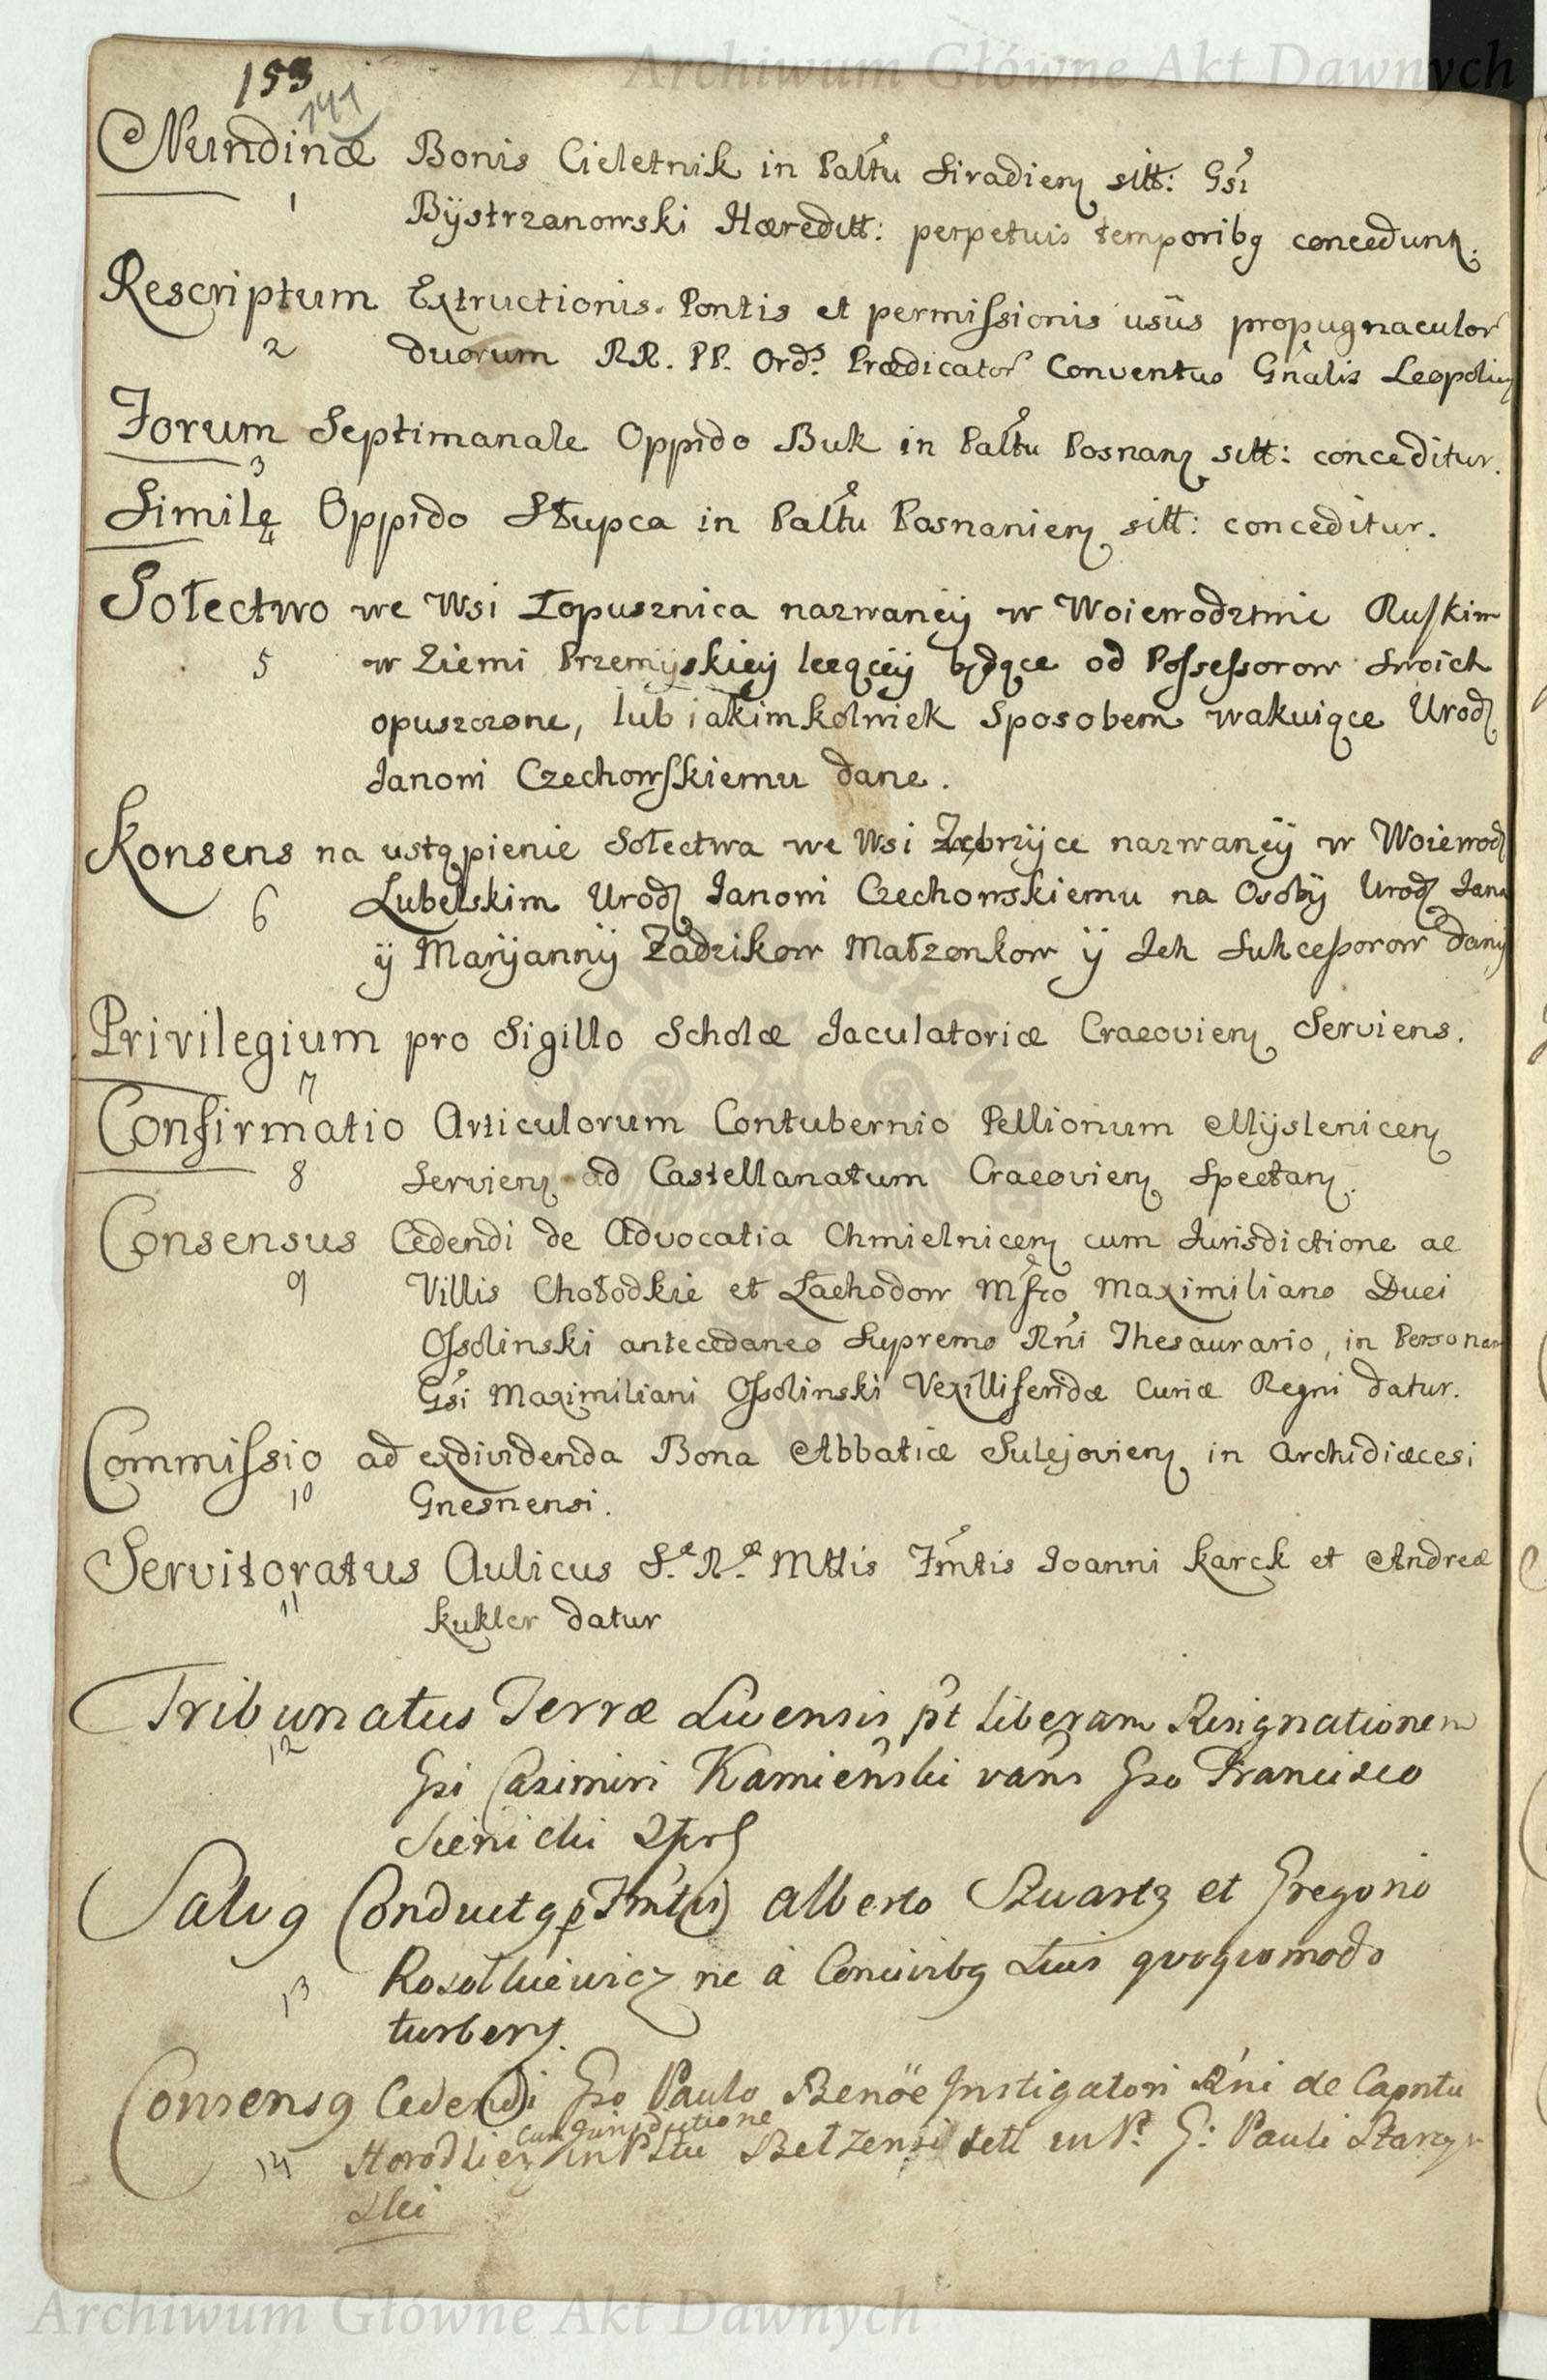 Archiwum Główne Akt Dawnych
153
141
Nundinæ Bonis Cieletnik in Paltu Siradien sitt: Gsi
1 Bÿstrzanowski Hæreditt: perpetuis temporibq concedunt.
Rescriptum Extructionis Pontis et permissionis usüs propugnaculor
2 duorum RR. PP. Ord.s Prædicator Conventus Gnalis Leopolien
Forum Septimanale Oppido Buk in Paltu Posnan sitt: conceditur.
3
Simile Oppido Słupca in Paltu Posnanien sitt: conceditur.
4
Sołectwo we Wsi Łopusznica nazwaneÿ w Woiewodztwie Ruskim
5 w Ziemi Przemÿskieÿ leeąceÿ będące od Possessorow Swoich
opuszczone, lub iakimkolwiek Sposobem wakuiące Urodz
Janowi Czechowskiemu dane.
Konsens na ustąpienie Sołectwa we Wsi Zębrzÿce nazwaneÿ w Woiewodz
6 Lubelskim Urodz Janowi Czechowskiemu na Osobÿ Urodz Jana
ÿ Marÿannÿ Zadzikow Małzonkow ÿ Ich Sukcessorow danÿ
Privilegium pro Sigillo Scholæ Jaculatoriæ Cracovien Serviens.
7
Confirmatio Articulorum Contubernio Pellionum Mÿslenicen
8 Servien ad Castellanatum Cracovien Spectan.
Consensus Cedendi de Advocatia Chmielnicen cum Jurisdictione ac
9 Villis Chołodkie et Lachodow Mfco Maximiliano Duci
Ossolinski antecedaneo Supremo Rni Thesaurario, in Personam
Gsi Maximiliani Ossolinski Vexilliferidæ Curiæ Regni datur.
Commissio ad exdividenda Bona Abbatiæ Sulejovien in Archidiæcesi
10 Gnesnensi.
Servitoratus Aulicus S.æ R.æ Mttis Fmtis Joanni Karck et Andreæ
11 Kukler datur
Tribunatus Terræ Livensis pt liberam Resignationem
12 Gsi Casimiri Kamieński vans Gso Francisco
Salvq Conductq Alberto Szwartz et Gregorio
13 ne à quoquomodo
turben.
Consensq Cedendi Gso Paulo Benöe Instigatori Rni de Capntu
cum Jurisdictione
14 Horodlien in Pltu Bełzensi sett in P. G: Pauli Starzyn
ski
Archiwum Główne Akt Dawnych